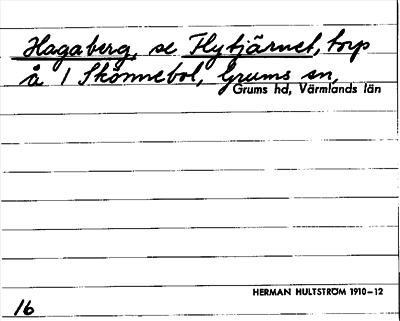 Hagaberg, se Flytjärnet, torp
å 1 Skönnebol, Grums sn,
Grums hd, Värmlands län
HERMAN HULTSTRÖM 1910–12
16